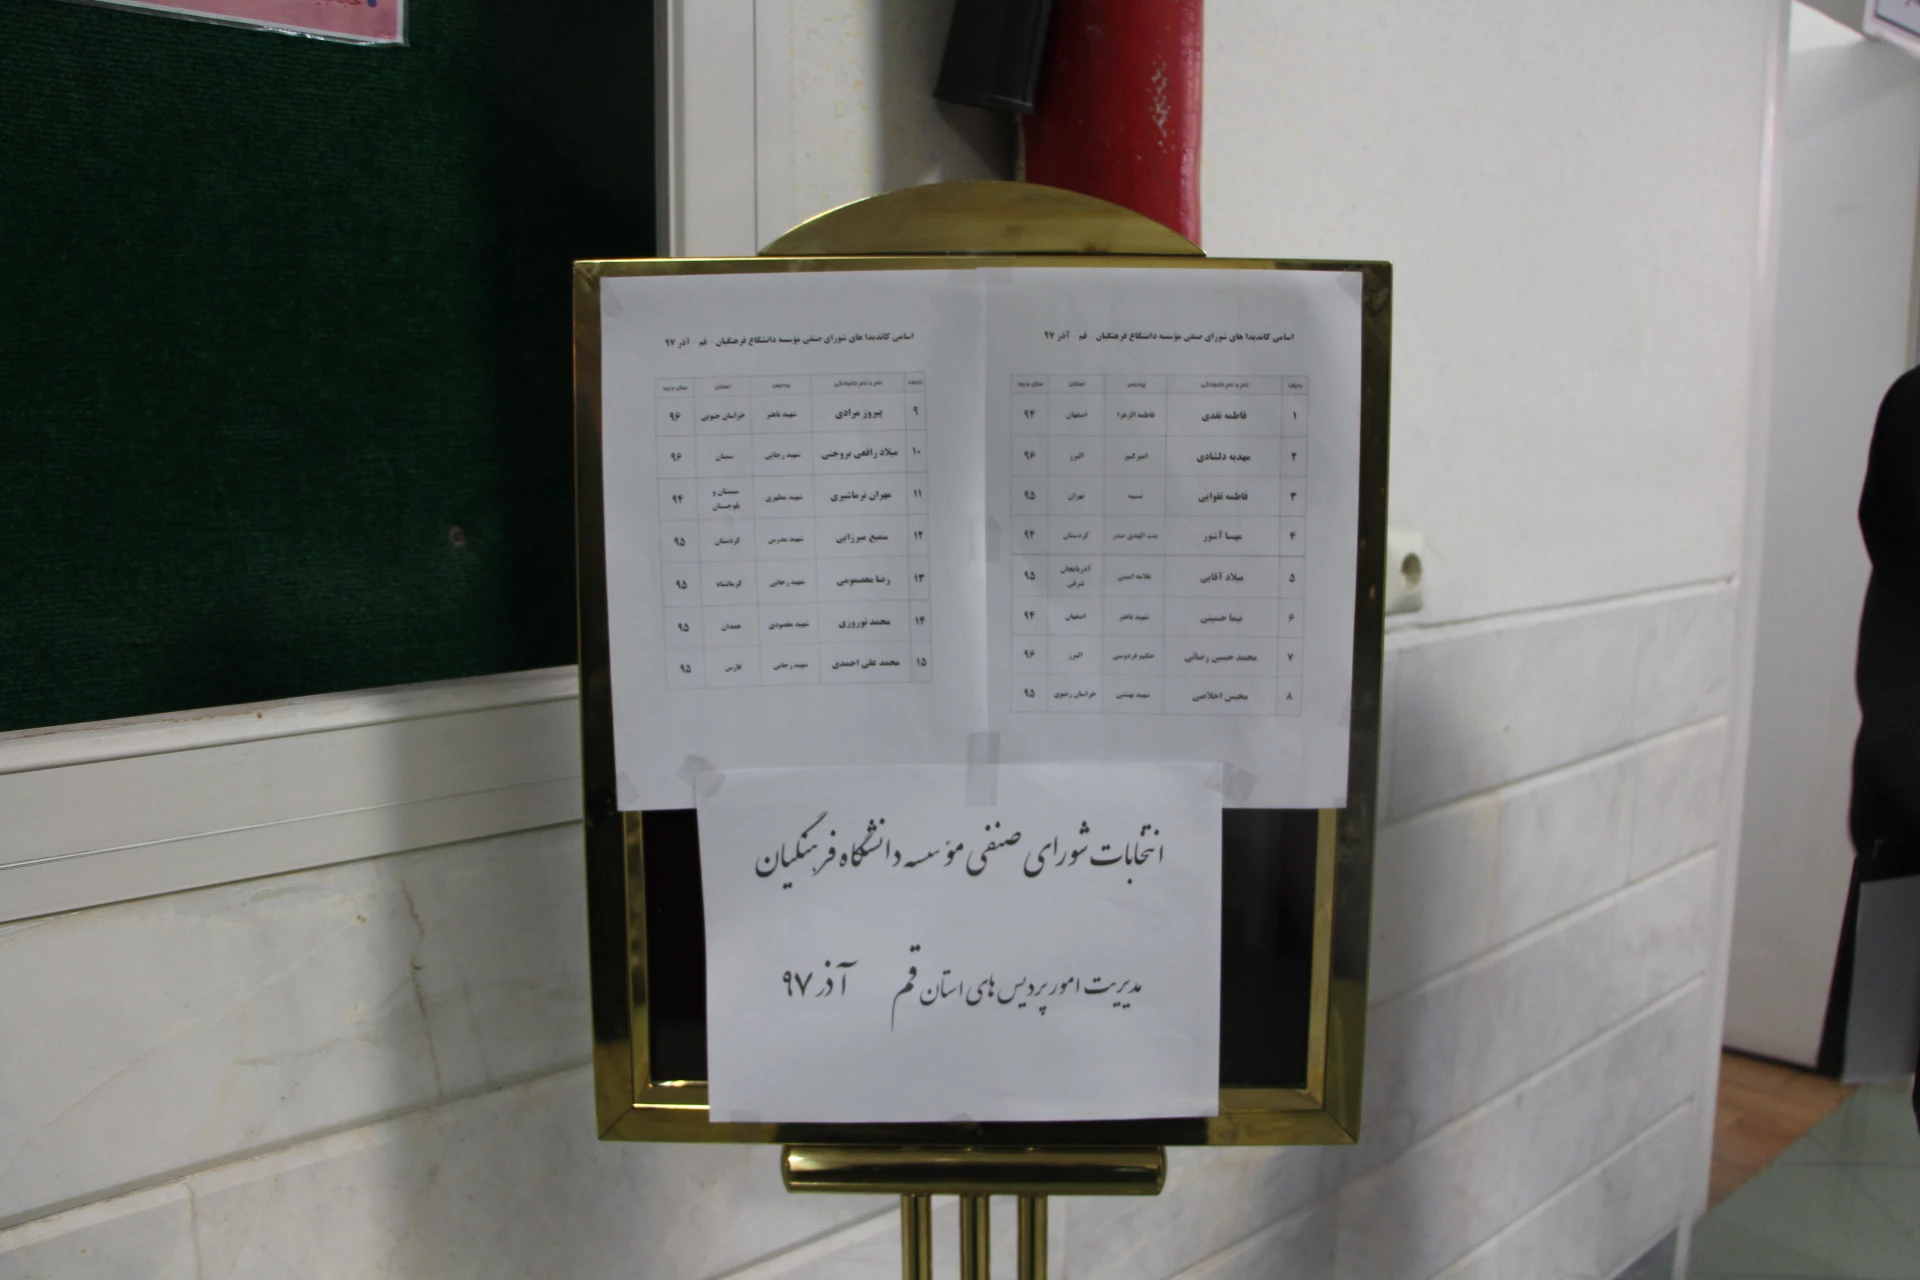 اسامی کاندیدا های شورای صنفی مؤسسه دانشگاع فرهنگیان - قم - آذر ۹۷
ردیف نام و نام خانوادگی پردیس استان سال ورود
۱ فاطمه نقدی فاطمه الزهرا اصفهان ۹۴
۲ مهدیه دلشادی امیرکبیر البرز ۹۶
۳ فاطمه تقوایی نسیبه تهران ۹۵
۴ مهسا آشور بنت الهدی صدر کردستان ۹۴
۵ میلاد آقایی علامه امینی آذربایجان شرقی ۹۵
۶ نیما حسینی شهید باهنر اصفهان ۹۴
۷ محمد حسین رضائی حکیم فردوسی البرز ۹۶
۸ محسن اخلاصی شهید بهشتی خراسان رضوی ۹۵
اسامی کاندیدا های شورای صنفی مؤسسه دانشگاع فرهنگیان - قم - آذر ۹۷
ردیف نام و نام خانوادگی پردیس استان سال ورود
۹ پیروز مرادی شهید باهنر خراسان جنوبی ۹۶
۱۰ میلاد رافعی بروجنی شهید رجایی سمنان ۹۶
۱۱ مهران نرماشیری شهید مطهری سیستان و بلوچستان ۹۴
۱۲ سمیع میرزایی شهید مدرس کردستان ۹۵
۱۳ رضا معصمومی شهید رجایی کرمانشاه ۹۵
۱۴ محمد نوروزی شهید مقصودی همدان ۹۵
۱۵ محمد علی احمدی شهید رجایی فارس ۹۵
انتخابات شورای صنفی مؤسسه دانشگاه فرهنگیان
مدیریت امور پردیس های استان قم آذر ۹۷